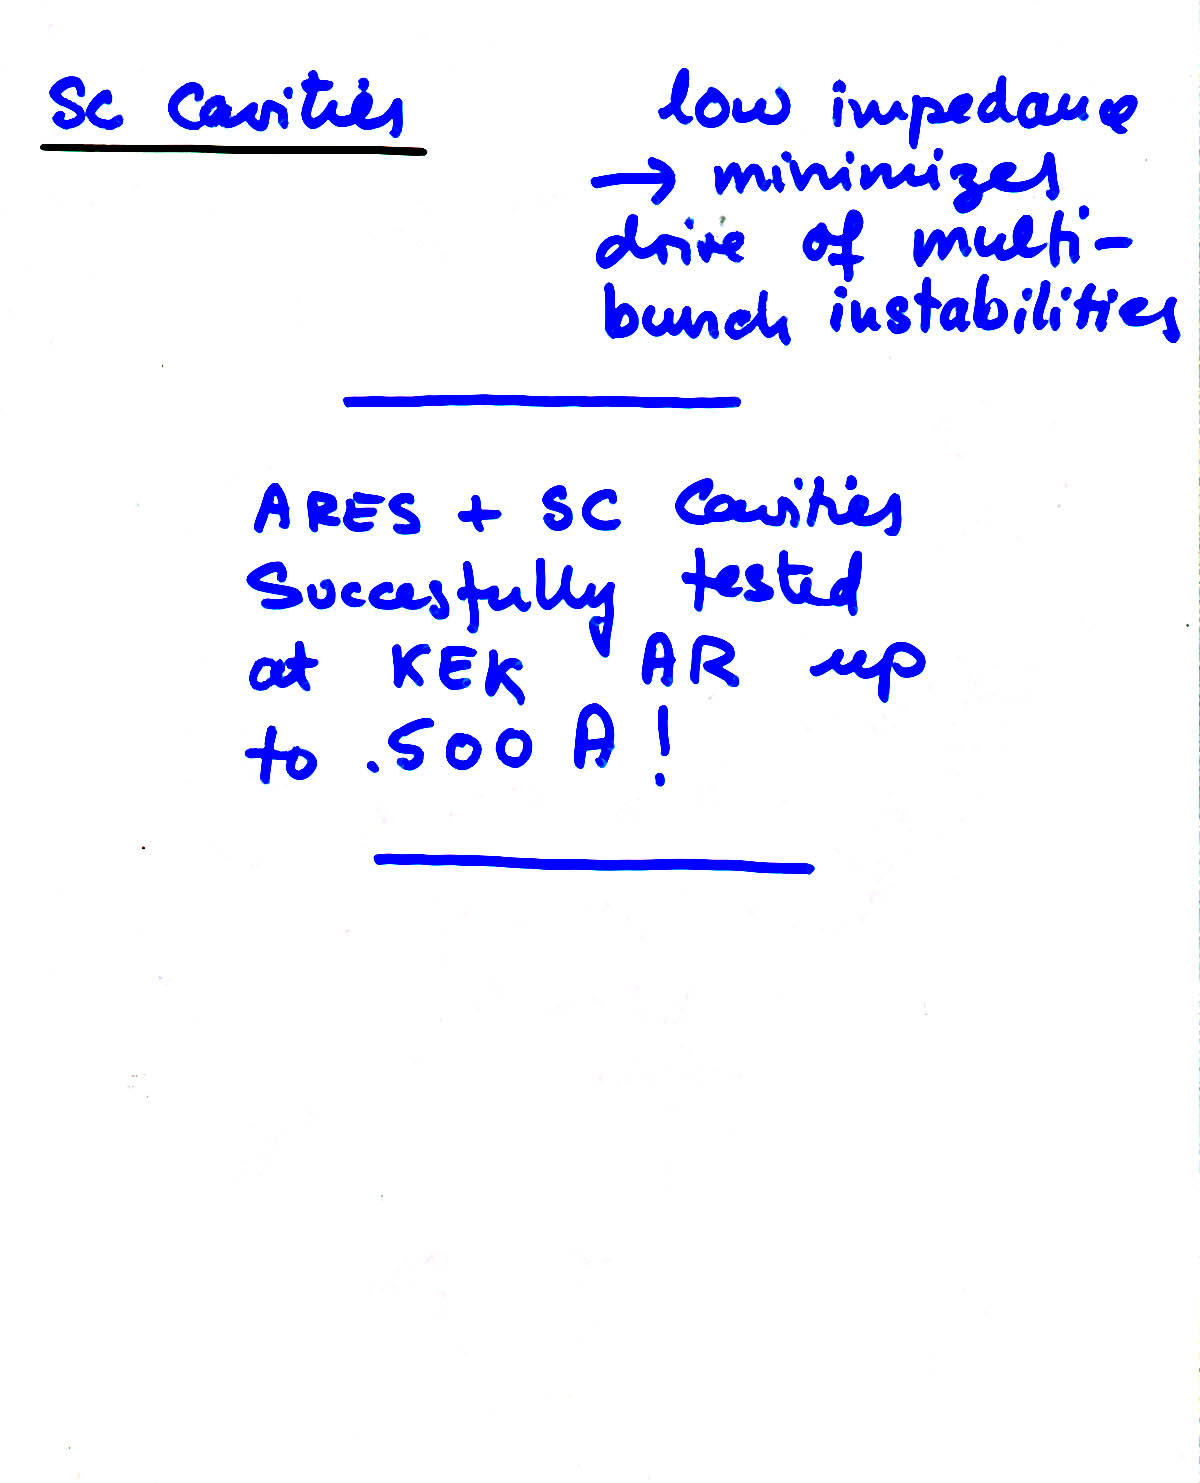 SC Cavities
low impedance
→ minimizes
drive of multi-
bunch instabilities
ARES + SC Cavities
Succesfully tested
at KEK AR up
to .500 A!